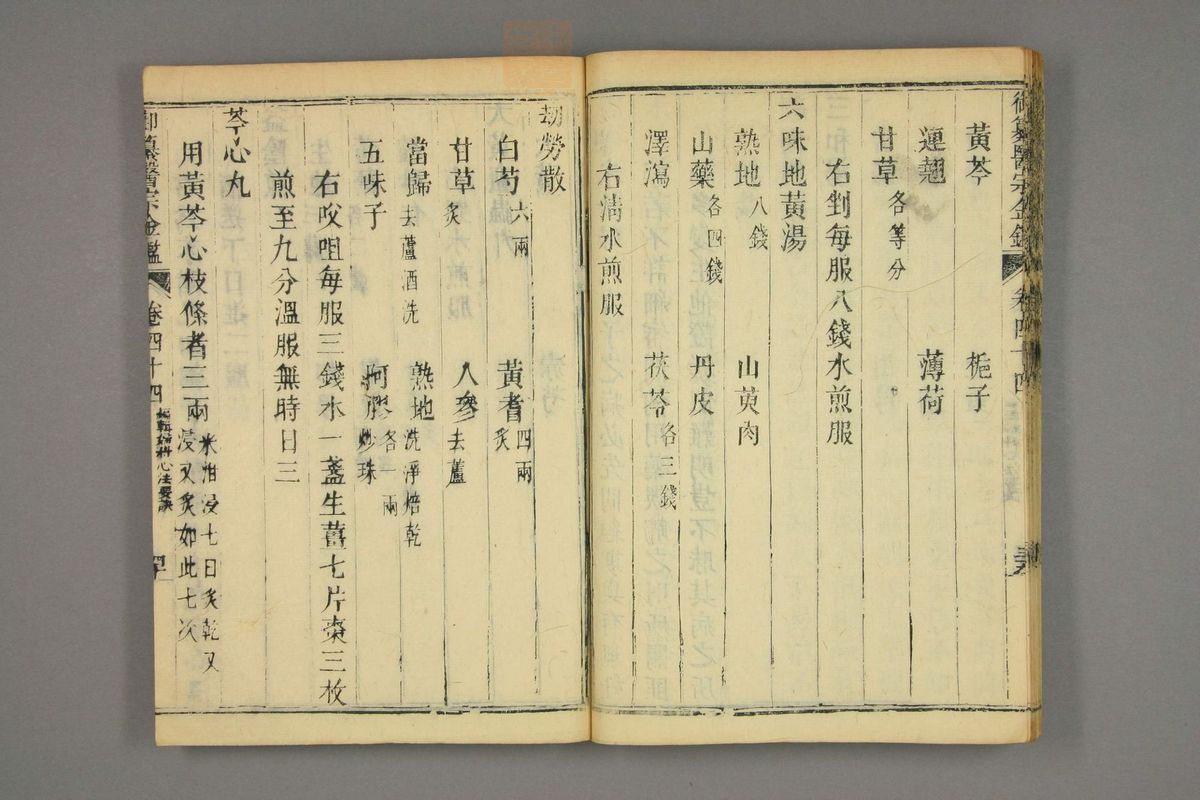 御纂醫宗金鑑 卷四十四
黃芩 梔子
連翹 薄荷
甘草各等分
右剉每服八錢水煎服
六味地黃湯
熟地八錢 山萸肉
山藥各四錢 丹皮
澤瀉 茯苓各三錢
右清水煎服
劫勞散
白芍六兩 黃耆四兩炙
甘草炙 人參去蘆
當歸去蘆酒洗 熟地洗淨焙乾
五味子 阿膠各一兩炒珠
右㕮咀每服三錢水一盞生薑七片棗三枚
煎至九分溫服無時日三
芩心丸
用黃芩心枝條者三兩米泔浸七日炙乾又浸又炙如此七次
御纂醫宗金鑑 卷四十四 編輯婦科心法要訣